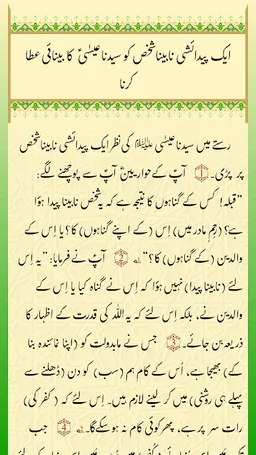 ایک پیدائشی نابیناشخص کو سیدنا عیسیٰؑ کا بینائی عطا
کرنا
رستے میں سیدنا عیسٰی ﷺ کی نظر ایک پیدائشی نابیناشخص
پر پڑی۔ 1 آپ کے حواریینؓ آپؑ سے پوچھنے لگے:
”قبلہ! کس کے گناہوں کا نتیجہ ہے کہ یہ شخص نابینا پیدا ہوا
ہے؟ (رحمِ مادر میں) اِس (کے اپنے گناہوں) کا؟ یا اِس کے
والدین (کے گناہوں) کا؟“ 2 آپؑ نے فرمایا: ”یہ اِس
لئے (نابینا پیدا) نہیں ہوا کہ اِس نے گناہ کیا یا اِس کے
والدین نے، بلکہ اِس لئے کہ یہ اللہ کی قدرت کے اظہار کا
ذریعہ بن جائے۔ 3 جس نے مابدولت کو (اپنا نمائندہ بنا
کے) بھیجا ہے، اُس کے کام ہم (سب) کو دن (ڈھلنے سے
پہلے ہی روشنی) میں کر لینے لازم ہیں۔ اِس لئے کہ (کفر کی)
رات سر پر ہے، پھر کوئی کام نہ ہو سکے گا۔ 4 جب